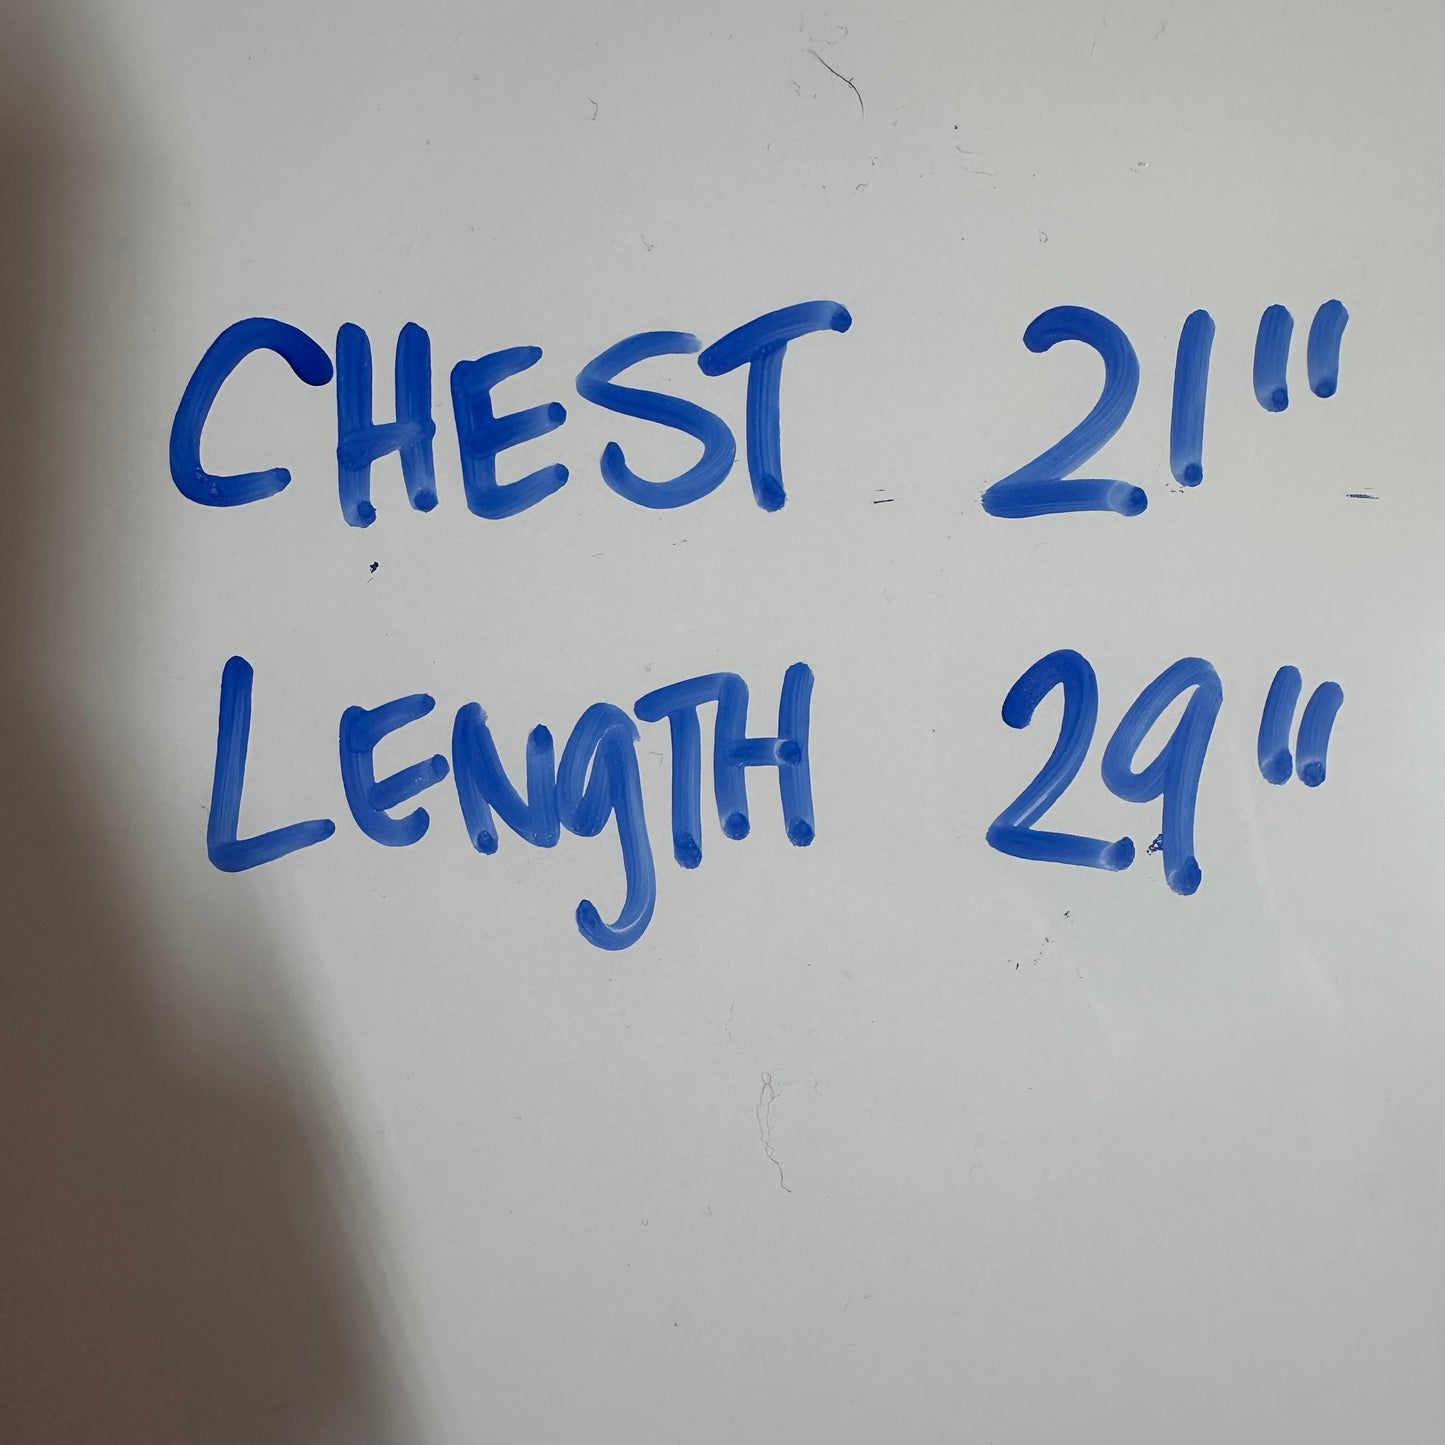 CHEST 21"
LENgTH 29"